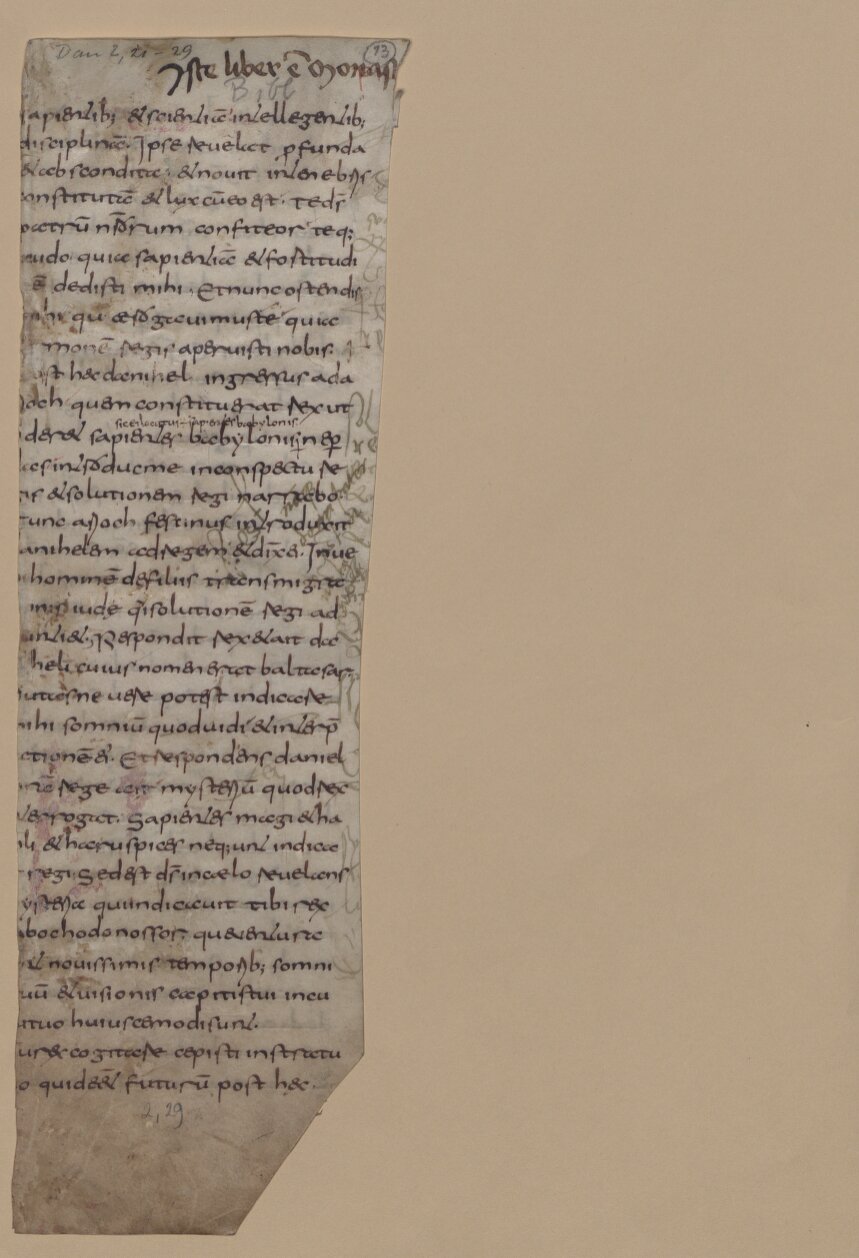 Dan 2, 21-29
13
Iste liber ē Monas
Bibl
sapientib; & scientiā intellegentib;
disciplinā. Ipse reuelat ꝓfunda
& abscondita; & nouit in tenebris
onstituta & lux cū eo est. te dš
patrū nrōrum confiteor teq;
audo quia sapientiā & fortitudi
ē dedisti mihi. Et nunc ostendis
mihi quae rogauimus te quia
monē regis aperuisti nobis.
ost hęc danihel ingressus ad a
och quem constituerat rex ut
der& sapientes babylonis; ne ꝑ
sapientes babylonis
as introduc me in conspectu re
is & solutionem regi narrabo
unc arioch festinus introduxit
anihelem ad regem & dix ei. Inue
hominē de filiis transmigra
iude q̄ solutionē regi ad
untiet. Respondit rex & ait da
heli cuius nomen erat baltasar
utasne uere potest indicare
ihi somniū quod uidi & interp̄
ationē ei. Et respondens daniel
rā rege ait mysteriū quod rex
terrogat. Sapientes magi & ha
li & haruspices neq; unt indica
regi. Sed est dš in caelo reuelans
ysteria qui indicauit tibi rex
bochodonossor quae uentura
t nouissimis temporib; somni
uū & uisionis capitis tui in cu
tuo huiuscemodi sunt.
u rex cogitare cepisti in stratu
o quid ess& futurū post hęc.
2, 29